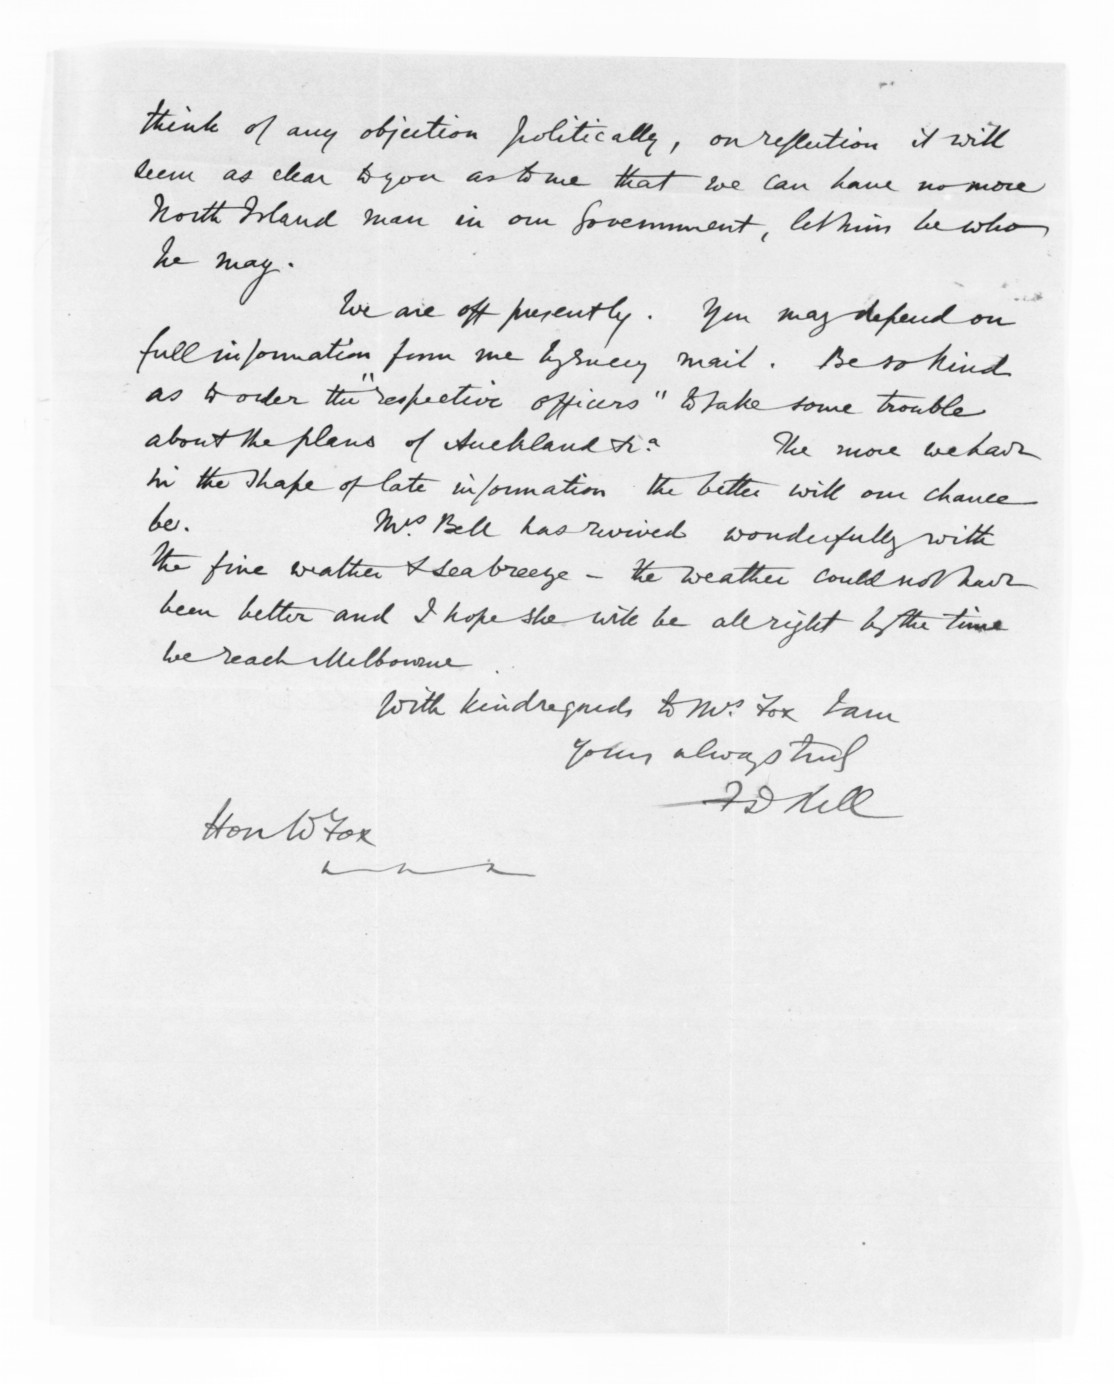 think of any objection politically, on reflection it will
seem as clear to you as to me that we can have no more
North Island man in our Government, let him be who
he may.
We are off presently. You may depend on
full information from me by every mail. Be so kind
as to order the "respective officers" to take some trouble
about the plans of Auckland &c.a The more we have
in the shape of late information the better will our chance
be. Mrs. Bell has revived wonderfully with
the fine weather & sea breeze – the weather could not have
been better and I hope she will be all right by the time
we reach Melbourne.
With kind regards to Mrs. Fox I am
Yours always truly
F D Bell
Hon W Fox